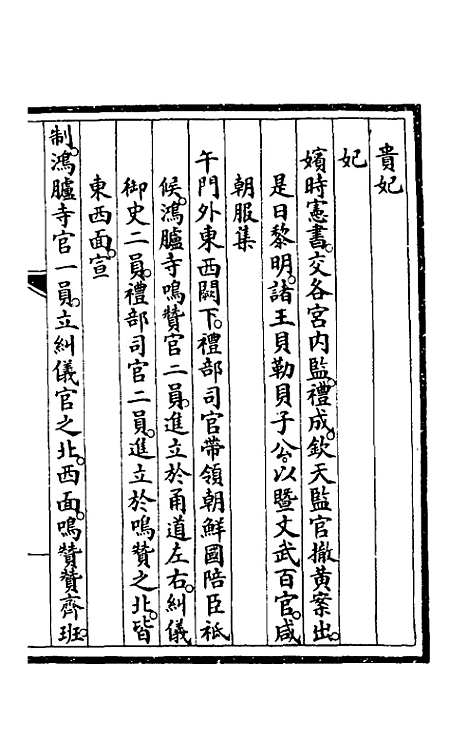 貴妃
妃
嬪時憲書。交各宮內監。禮成。欽天監官撤黃案出。
是日黎明。諸王貝勒貝子公。以暨文武百官。咸
朝服集
午門外東西闕下。禮部司官帶領朝鮮國陪臣祗
候。鴻臚寺鳴贊官二員。進立於甬道左右。糾儀
御史二員。禮部司官二員。進立於鳴贊之北。皆
東西面。宣
制。鴻臚寺官一員。立糾儀官之北。西面。鳴贊贊齊班。